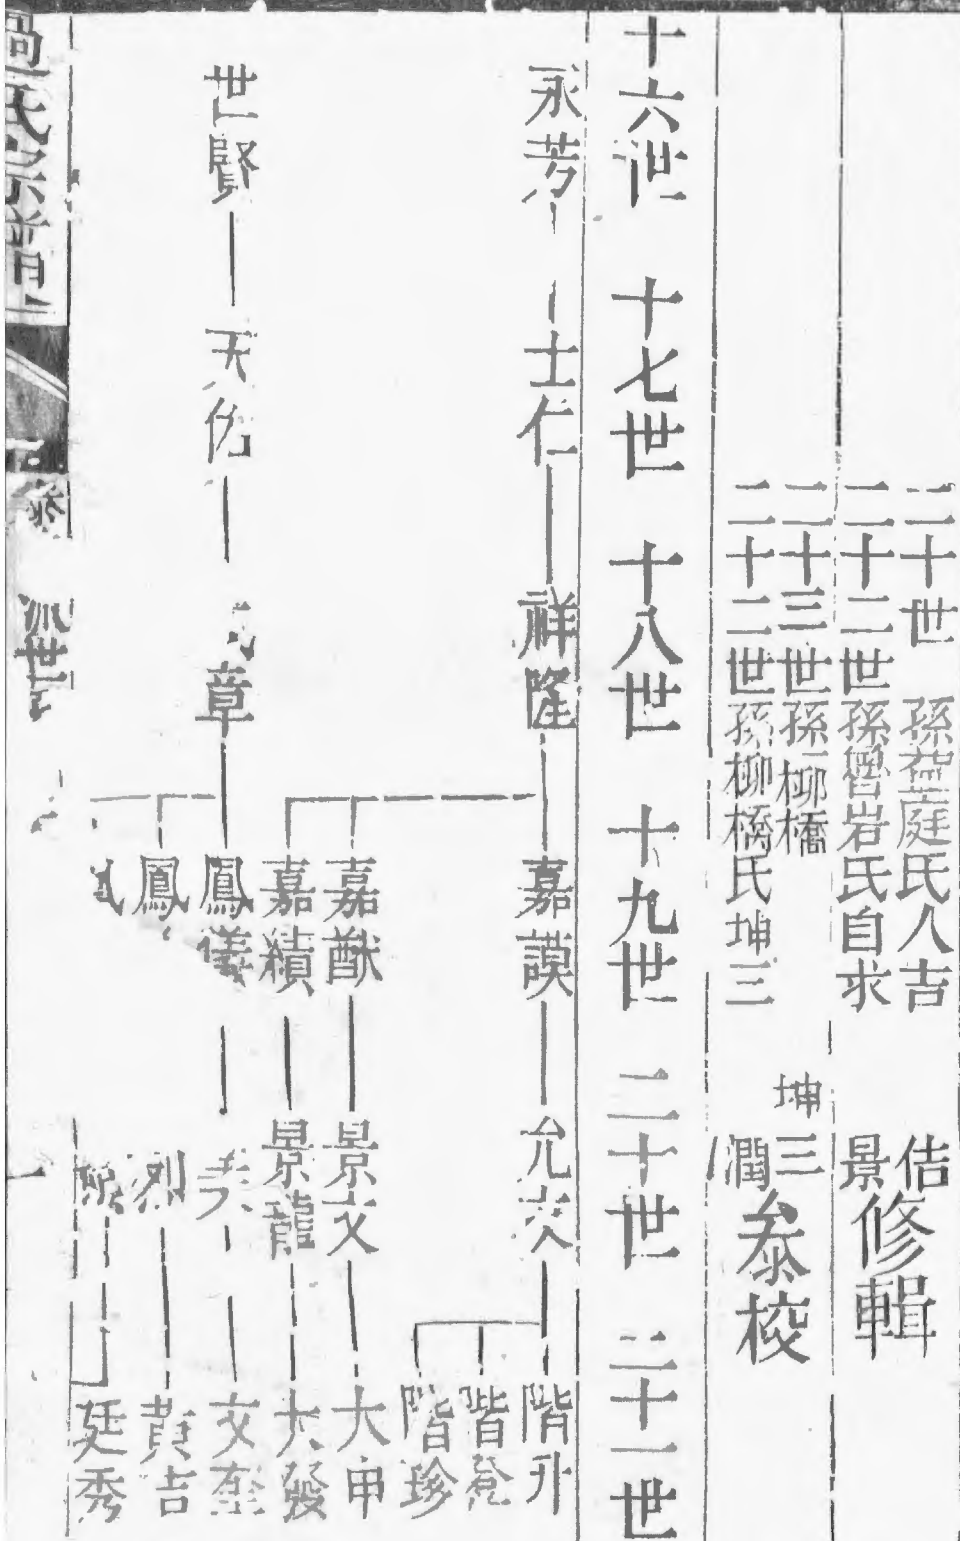 二十世 孫益庭氏人吉 佶
二十二世孫魯岩氏自求 景
修輯
二十三世孫柳橋 坤三
二十二世孫柳橋氏坤三 潤
叅校
十六世 十七世 十八世 十九世 二十世 二十一世
永芳 士仁 祥隆 嘉謨 允文 階升
階
階珍
嘉猷 景文 大申
嘉績 景龍 大發
世賢 天佑 章 鳳儀 文奎
鳳 烈 黄吉
廷秀
過氏宗譜
世